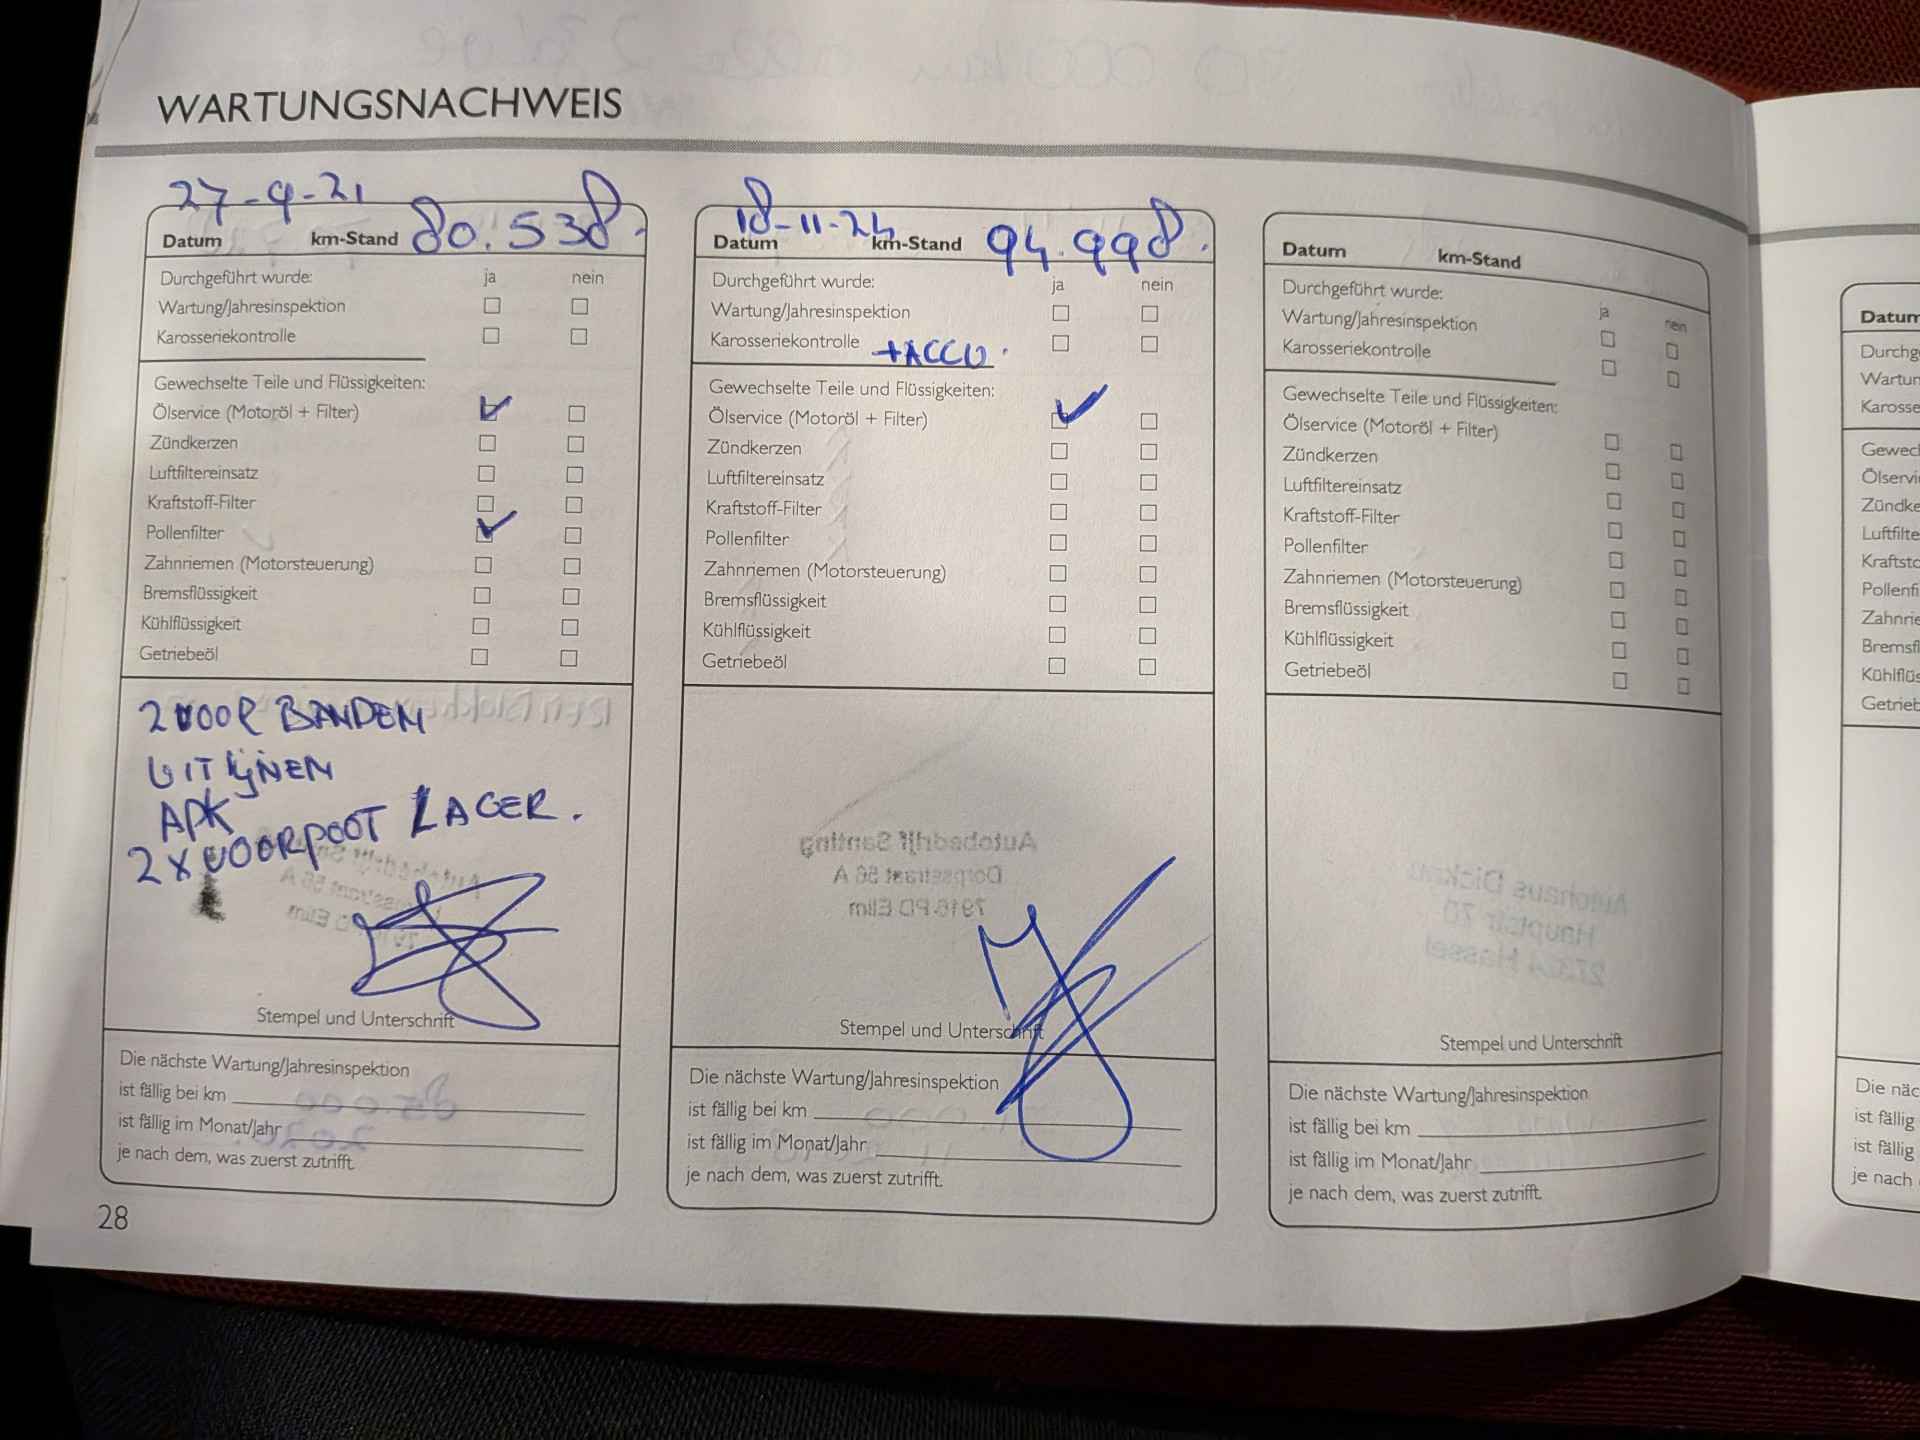 WARTUNGSNACHWEIS
27-9-21
Datum km-Stand 80.538.
Durchgeführt wurde: ja nein
Wartung/Jahresinspektion
Karosseriekontrolle
Gewechselte Teile und Flüssigkeiten:
Ölservice (Motoröl + Filter)
Zündkerzen
Luftfiltereinsatz
Kraftstoff-Filter
Pollenfilter
Zahnriemen (Motorsteuerung)
Bremsflüssigkeit
Kühlflüssigkeit
Getriebeöl
2 VOOR BANDEN
UITLIJNEN
APK
2x VOORPOOT LAGER.
Stempel und Unterschrift
Die nächste Wartung/Jahresinspektion
ist fällig bei km
ist fällig im Monat/Jahr
je nach dem, was zuerst zutrifft.
28
18-11-24
Datum km-Stand 94.998.
Durchgeführt wurde: ja nein
Wartung/Jahresinspektion
Karosseriekontrolle +ACCU.
Gewechselte Teile und Flüssigkeiten:
Ölservice (Motoröl + Filter)
Zündkerzen
Luftfiltereinsatz
Kraftstoff-Filter
Pollenfilter
Zahnriemen (Motorsteuerung)
Bremsflüssigkeit
Kühlflüssigkeit
Getriebeöl
Autobedrijf Santing
Dorpsstraat 56 A
7916 PD Elim
Stempel und Unterschrift
Die nächste Wartung/Jahresinspektion
ist fällig bei km
ist fällig im Monat/Jahr
je nach dem, was zuerst zutrifft.
Datum km-Stand
Durchgeführt wurde: ja nein
Wartung/Jahresinspektion
Karosseriekontrolle
Gewechselte Teile und Flüssigkeiten:
Ölservice (Motoröl + Filter)
Zündkerzen
Luftfiltereinsatz
Kraftstoff-Filter
Pollenfilter
Zahnriemen (Motorsteuerung)
Bremsflüssigkeit
Kühlflüssigkeit
Getriebeöl
Stempel und Unterschrift
Die nächste Wartung/Jahresinspektion
ist fällig bei km
ist fällig im Monat/Jahr
je nach dem, was zuerst zutrifft.
Datum
Die näc
ist fällig
ist fällig
je nach